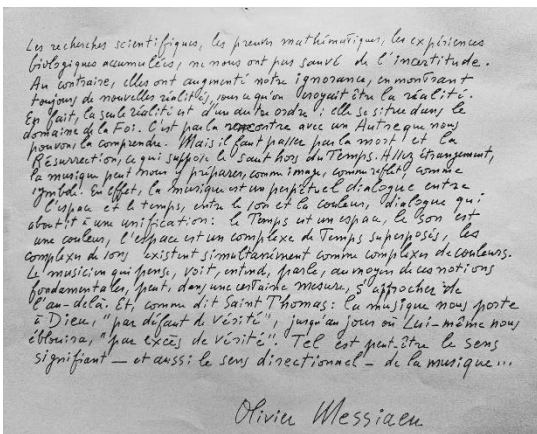 Les recherches scientifiques, les preuves mathématiques, les expériences
biologiques accumulées, ne nous ont pas sauvé de l'incertitude.
Au contraire, elles ont augmenté notre ignorance, en montrant
toujours de nouvelles réalités, sous ce qu'on croyait être la réalité.
En fait, la seule réalité est d'un autre ordre : elle se situe dans le
domaine de la Foi. C'est par la rencontre avec un Autre que nous
pouvons la comprendre. Mais il faut passer par la mort et la
Résurrection, ce qui suppose le saut hors du Temps. Assez étrangement,
la musique peut nous y préparer, comme image, comme reflet, comme
symbole. En effet, la musique est un perpétuel dialogue entre
l'espace et le temps, entre le son et la couleur, dialogue qui
aboutit à une unification : le Temps est un espace, le son est
une couleur, l'espace est un complexe de Temps superposés, les
complexes de sons existent simultanément comme complexes de couleurs.
Le musicien qui pense, voit, entend, parle, au moyen de ces notions
fondamentales, peut, dans une certaine mesure, s'approcher de
l'au-delà. Et, comme dit Saint Thomas : la musique nous porte
à Dieu, "par défaut de vérité", jusqu'au jour où Lui-même nous
éblouira, "par excès de vérité". Tel est peut-être le sens
signifiant — et aussi le sens directionnel — de la musique...
Olivier Messiaen